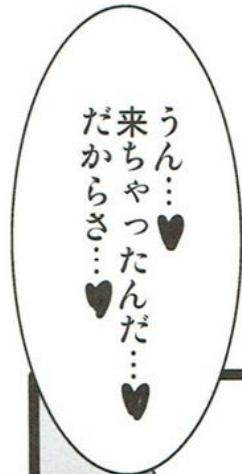 うん…♥
来ちゃったんだ…♥
だからさ…♥